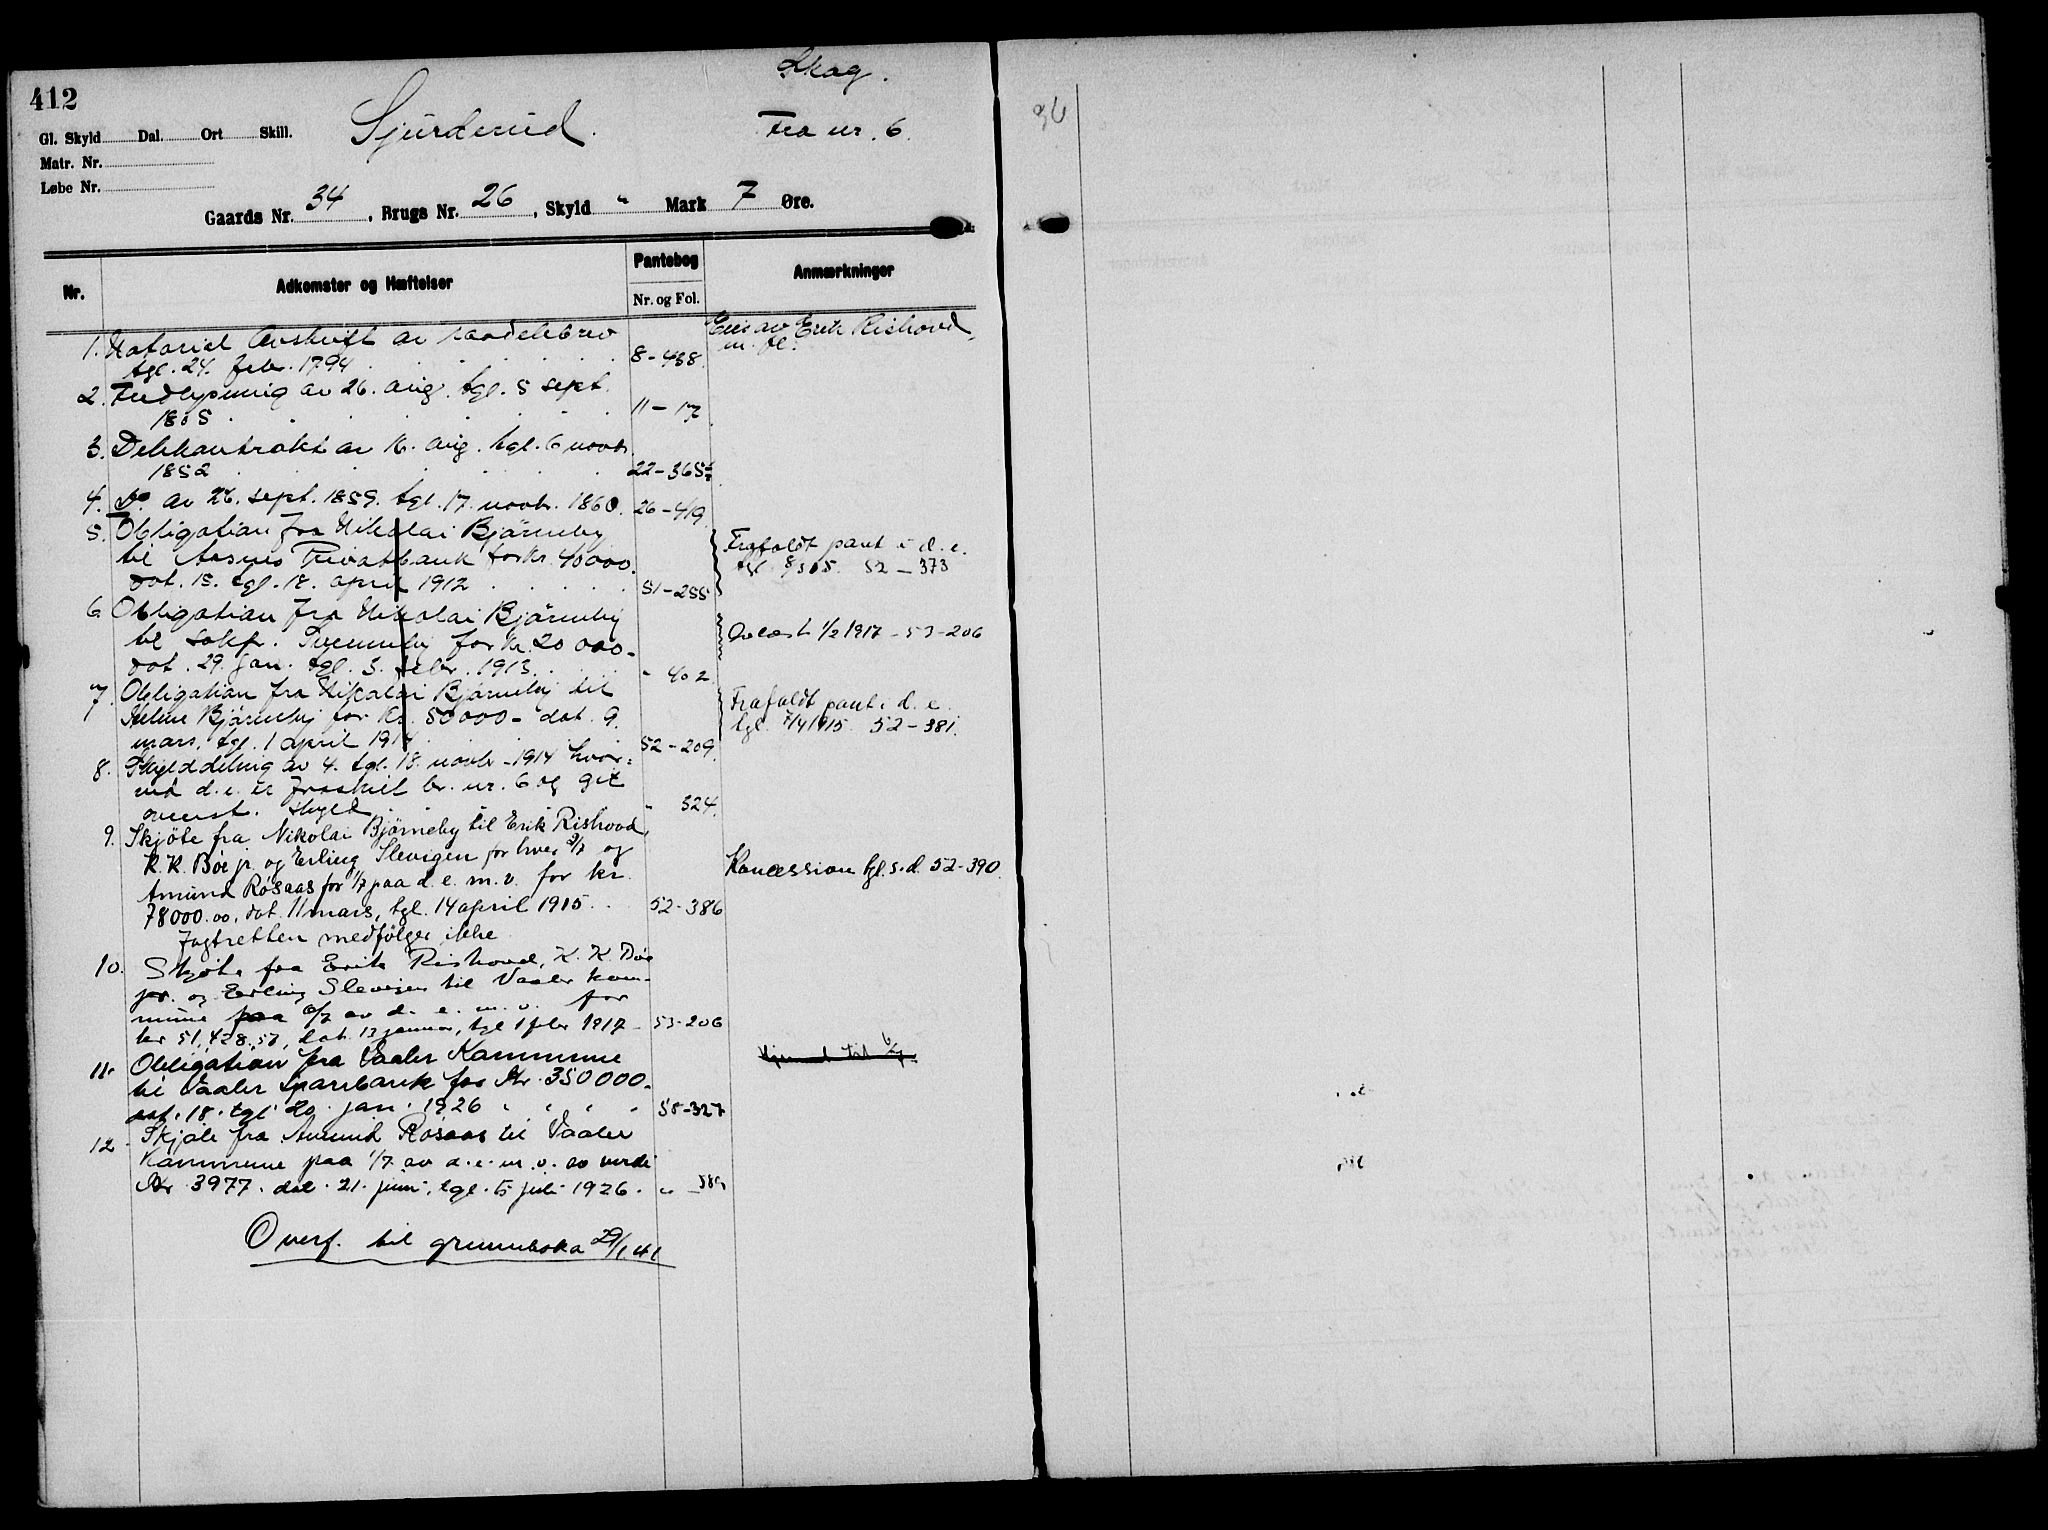 412
Skog.
Gl. Skyld Dal. Ort Skill.
Sjurderud.
Fra nr. 6.
Matr. Nr.
Løbe Nr.
Gaards Nr. 34, Brugs Nr. 26, Skyld " Mark 7 Øre.
Nr.
Adkomster og Hæftelser
Pantebog
Nr. og Fol.
Anmærkninger
1. Notarial Avskrift av raadelsbrev
tgl. 24. febr. 1794 8-438.
Eies av Erik Rishovd
m. fl.
2. Fredlysning av 26. aug. tgl. 5 sept.
1805 11-17
3. Delekontrakt av 16. aug. tgl. 6 novbr.
1852 22-365
4. Do av 26. sept. 1859. tgl. 17. novbr. 1860. 26-419
5. Obligation fra Nikolai Bjørneby
til Aasnes Privatbank for kr. 40000.
dat. 15. tgl. 18. april 1912 51-255
Frafaldt pant i d. e.
tgl. 8/3 15. 52-373
6. Obligation fra Nikolai Bjørneby
til sakf. Svenneby for kr. 20 000-
dat. 29. jan. tgl. 3. febr. 1913. " 402
Avlæst 1/2 1917 - 53-206
7. Obligation fra Nikolai Bjørneby til
Heline Bjørneby for kr. 50000- dat. 9.
mars, tgl. 1 april 1914 52-209
Frafaldt pant i d. e.
tgl. 7/4 1915. 52-381.
8. Skylddeling av 4. tgl. 18. novbr. 1914 hvor-
ved d. e. er fraskilt br. nr. 6 og git
ovenst. skyld " 324.
9. Skjöte fra Nikolai Bjørneby til Erik Rishovd,
K. K. Böe jr. og Erling Slevigen for hver 2/7 og
Amund Rosaas for 1/7 paa d. e. m. v. for kr.
78000.00, dat. 11 mars, tgl. 14 april 1915 52-386
Koncession tgl. s. d. 52-390
Jagtretten medfölger ikke
10. Skjöte fra Erik Rishovd, K. K. Böe
jr. og Erling Slevigen til Vaaler kom-
mune paa 6/7 av d. e. m. v. for
kr 51,428.57, dat. 13 januar, tgl 1 febr 1917 - 53-206
11. Obligation fra Vaaler Kommune
til Vaaler Sparebank for Kr. 350000-
dat. 18. tgl. 20. jan. 1926 58-327
12. Skjöte fra Amund Rosaas til Vaaler
Kommune paa 1/7 av d. e. m. v. av verdi
Kr 3977. dat. 21. juni, tgl. 5 juli 1926. "
Overf. til grunnboka 29/1 41